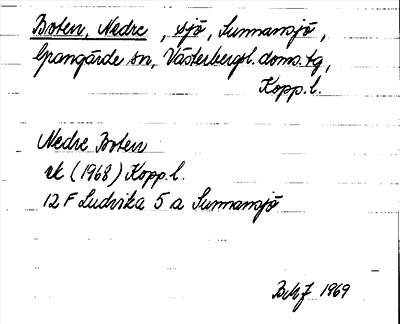 Boten, Nedre, sjö, Sunnansjö,
Grangärde sn, Västerbergsl. doms. tg,
Kopp. l.
Nedre Boten
rk (1968) Kopp. l.
12 F Ludvika 5 a Sunnansjö
1969